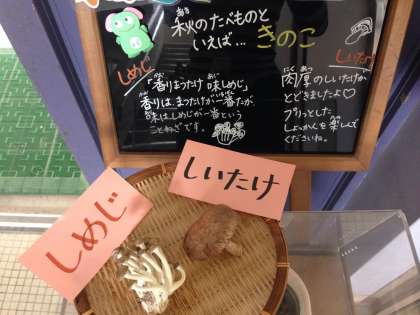 秋のたべものと
あき
いえば…きのこ
しめじ
「香りまつたけ 味しめじ」
香りは、まつたけが一番だが、
味はしめじが一番という
ことわざです。
しいたけ
肉厚のしいたけが
にくあつ
とどきましたよ♡
プリっとした
しょっかんを楽しんで
くださいね。
しいたけ
しめじ